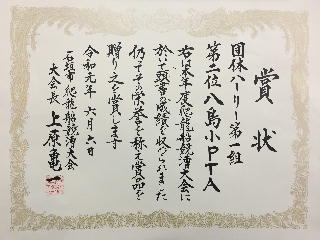 賞状
団体ハーリー第一組
第二位 八島小PTA
右は本年度爬龍船競漕大会に
於いて頭書の成績を収められました
仍てその栄誉を称え賞品を
贈り之を賞します
令和元年 六月六日
石垣市爬龍船競漕大会
大会長 上原亀一